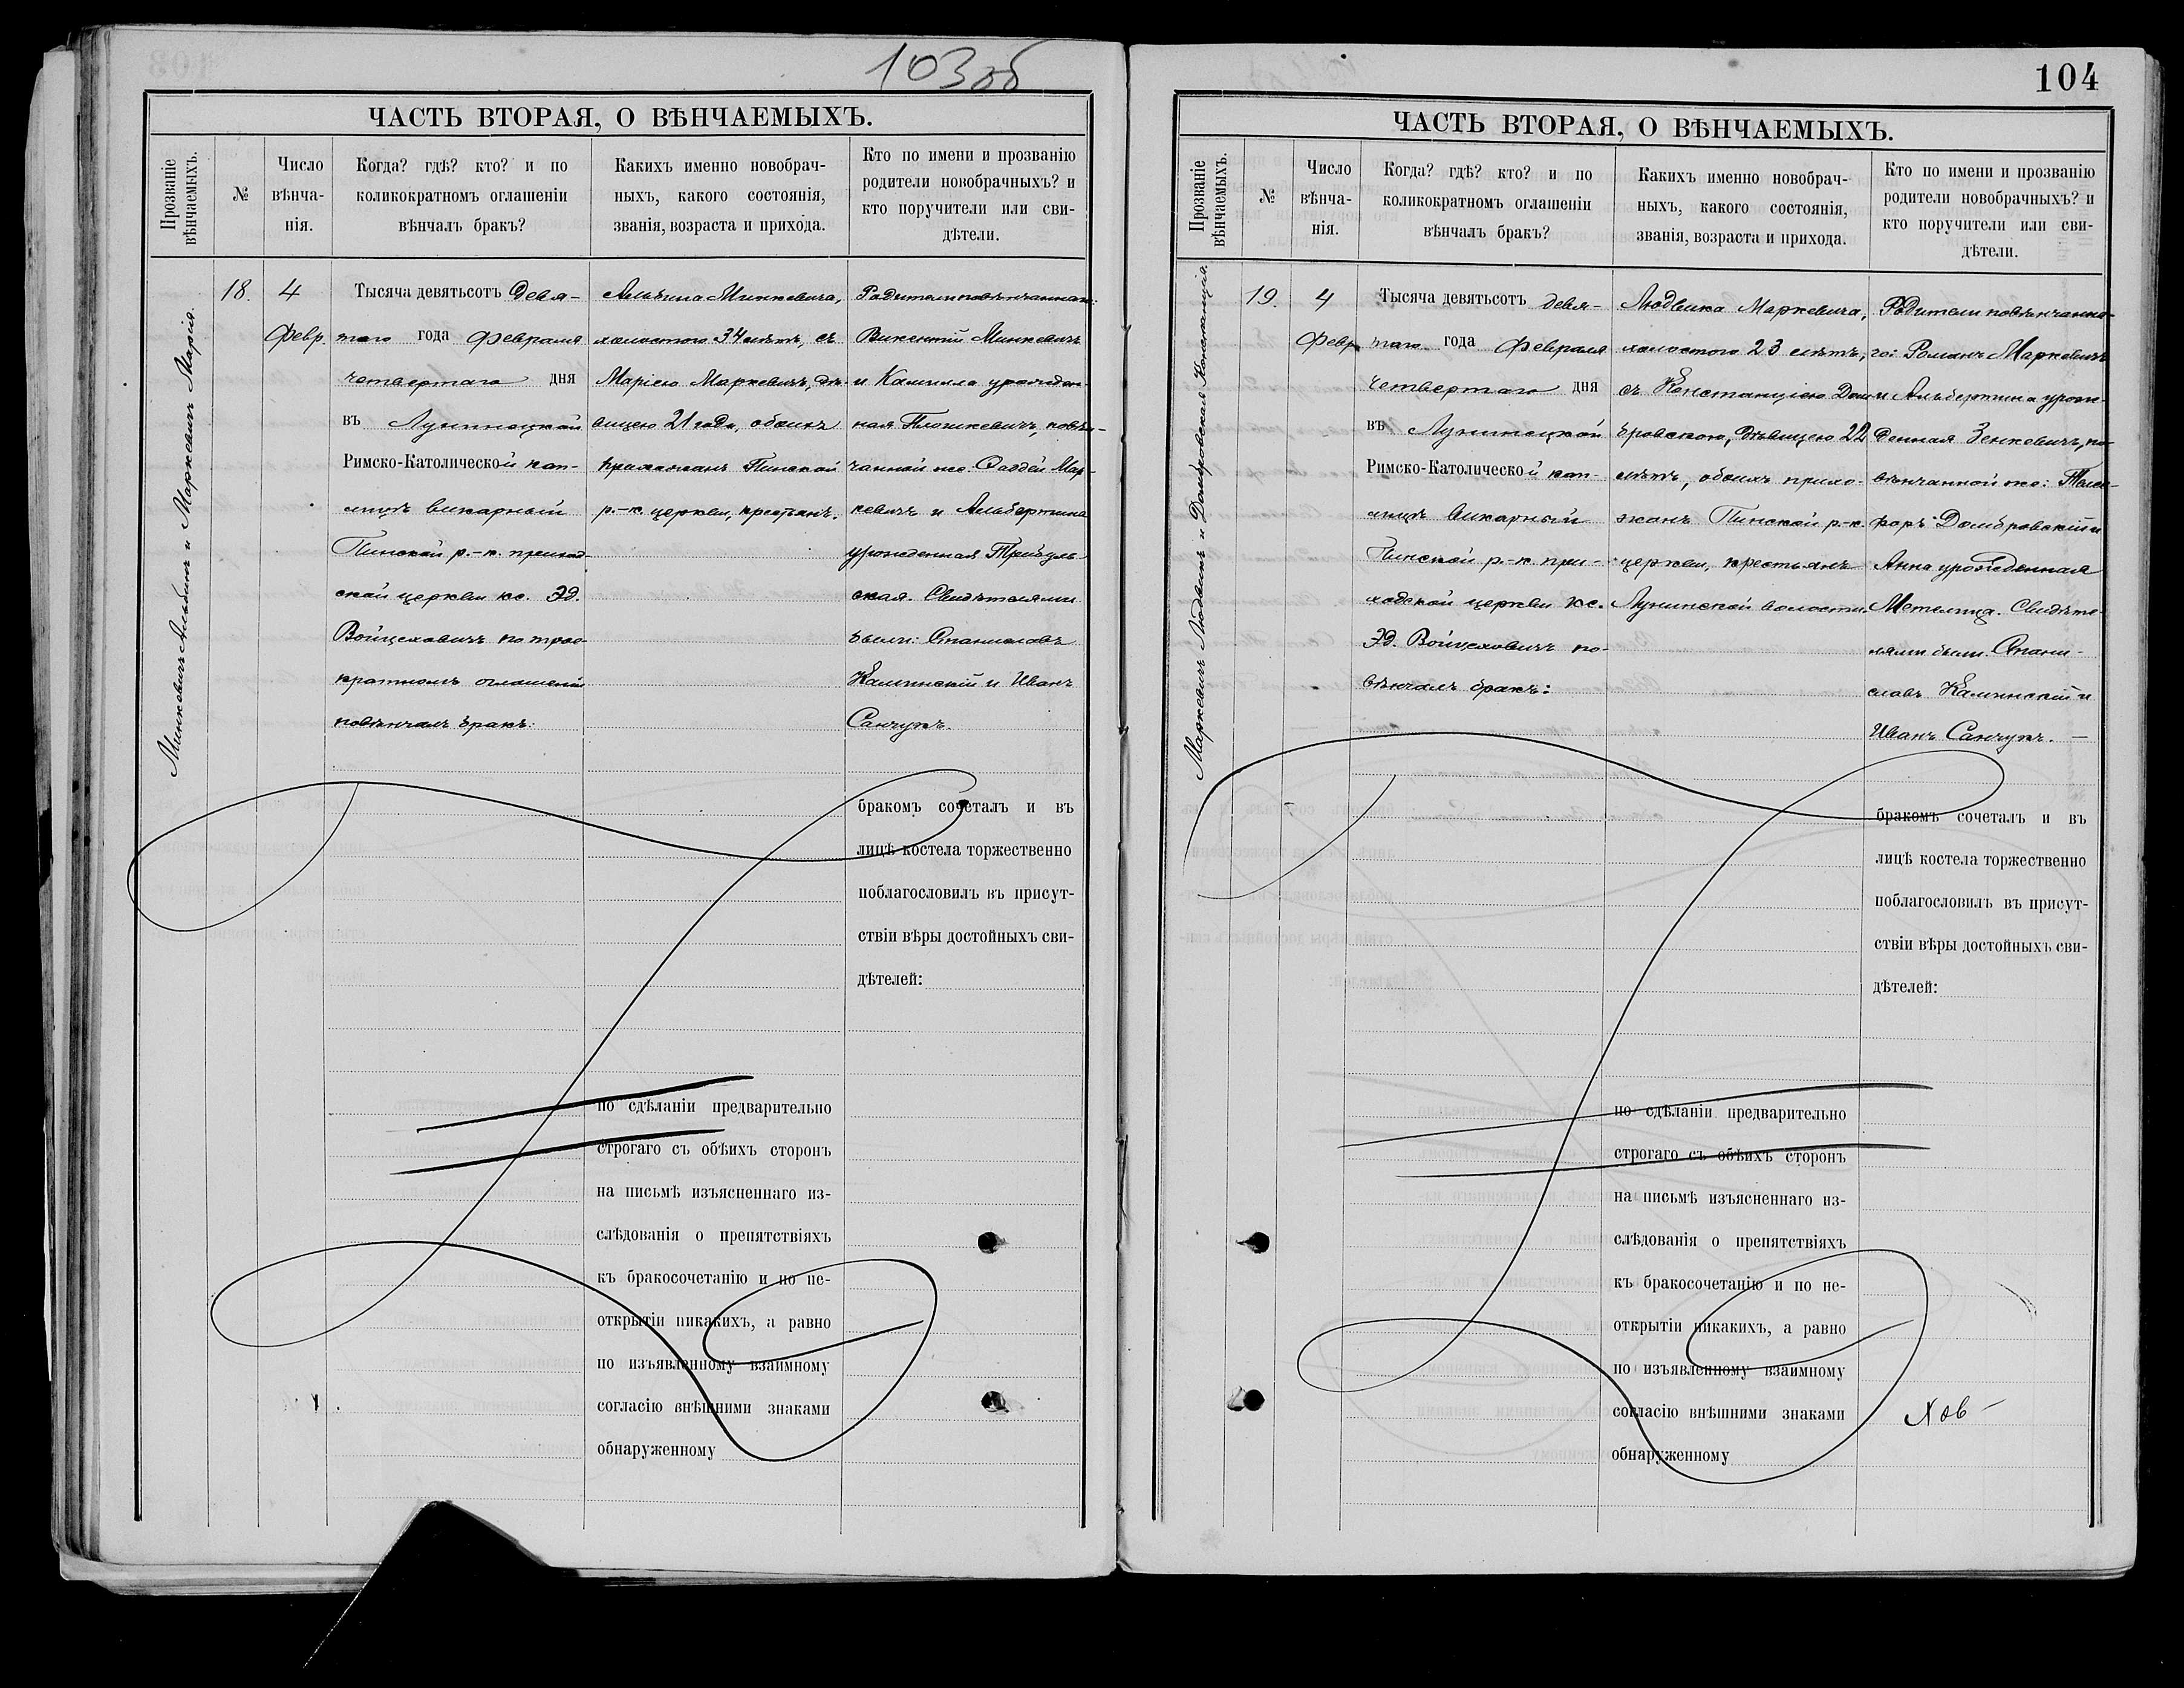 103 об
ЧАСТЬ ВТОРАЯ, О ВѢНЧАЕМЫХЪ.
Прозваніе вѣнчаемыхъ.
№
Число
вѣнча-
нія.
Когда? гдѣ? кто? и по
коликократномъ оглашеніи
вѣнчалъ бракъ?
Какихъ именно новобрач-
ныхъ, какого состоянія,
званія, возраста и прихода.
Кто по имени и прозванію
родители новобрачныхъ? и
кто поручители или сви-
дѣтели.
Минкевичъ Альбинъ и Маркевичъ Марія.
18.
4
Февр
Тысяча девятьсотъ девя-
таго года Февраля
четвертаго дня
въ Лунинецкой
Римско-Католической кап-
лицѣ викарный
Пинской р.-к. приход-
ской церкви кс. Эд.
Войцеховичъ по трое-
кратномъ оглашеніи
повѣнчалъ бракъ:
Альбина Минкевича,
холостого 34 лѣтъ, съ
Маріею Маркевичъ, дѣ-
вицею 21 года, обоихъ
прихожанъ Пинской
р.-к. церкви, крестьянъ.
Родители повѣнчаннаго:
Викентій Минкевичъ
и Камилла урожден-
ная Плошкевичъ, повѣн-
чанной же: Фаддей Мар-
кевичъ и Альбертина
урожденная
ская. Свидѣтелями
были: Станиславъ
Калинскій и Иванъ
Санчукъ.
бракомъ сочеталъ и въ
лицѣ костела торжественно
поблагословилъ въ присут-
ствіи вѣры достойныхъ сви-
дѣтелей:
по сдѣланіи предварительно
строгаго съ обѣихъ сторонъ
на письмѣ изъясненнаго из-
слѣдованія о препятствіяхъ
къ бракосочетанію и по не-
открытіи никакихъ, а равно
по изъявленному взаимному
согласію внѣшними знаками
обнаруженному
104
ЧАСТЬ ВТОРАЯ, О ВѢНЧАЕМЫХЪ.
Прозваніе вѣнчаемыхъ.
№
Число
вѣнча-
нія.
Когда? гдѣ? кто? и по
коликократномъ оглашеніи
вѣнчалъ бракъ?
Какихъ именно новобрач-
ныхъ, какого состоянія,
званія, возраста и прихода.
Кто по имени и прозванію
родители новобрачныхъ? и
кто поручители или сви-
дѣтели.
Маркевичъ Людвикъ и Домбровская Констанція.
19.
4
Февр
Тысяча девятьсотъ девя-
таго года Февраля
четвертаго дня
въ Лунинецкой
Римско-Католической кап-
лицѣ викарный
Пинской р.-к. при-
ходской церкви кс.
Эд. Войцеховичъ по-
вѣнчалъ бракъ:
Людвика Маркевича,
холостого 23 лѣтъ,
съ Констанціею Дом-
бровскою, дѣвицею 22
лѣтъ, обоихъ прихо-
жанъ Пинской р.-к.
церкви, крестьянъ
Лунинской волости.
Родители повѣнчанна-
го: Романъ Маркевичъ
и Альбертина урож-
денная Зенкевичъ, по-
вѣнчанной же:
Домбровскій и
Анна урожденная
Метелица. Свидѣте-
лями были: Стани-
славъ Калинскій и
Иванъ Санчукъ. —
бракомъ сочеталъ и въ
лицѣ костела торжественно
поблагословилъ въ присут-
ствіи вѣры достойныхъ сви-
дѣтелей:
по сдѣланіи предварительно
строгаго съ обѣихъ сторонъ
на письмѣ изъясненнаго из-
слѣдованія о препятствіяхъ
къ бракосочетанію и по не-
открытіи никакихъ, а равно
по изъявленному взаимному
согласію внѣшними знаками
обнаруженному